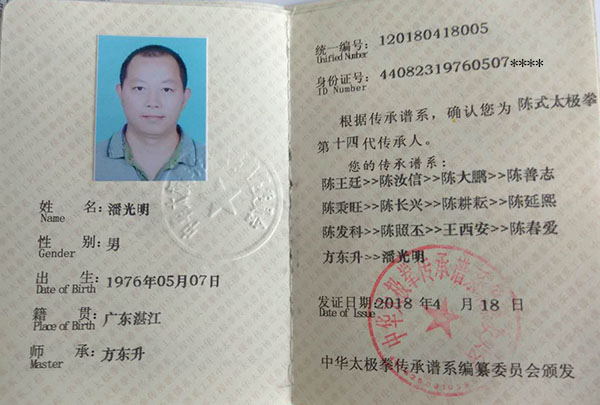 姓 名：潘光明
Name
性 别：男
Gender
出 生：1976年05月07日
Date of Birth
籍 贯：广东湛江
Place of Birth
师 承：方东升
Master
统一编号：120180418005
Unified Number
身份证号：44082319760507****
ID Number
根据传承谱系，确认您为 陈式太极拳
第十四代传承人。
您的传承谱系：
陈王廷>>陈汝信>>陈大鹏>>陈善志
陈秉旺>>陈长兴>>陈耕耘>>陈延熙
陈发科>>陈照丕>>王西安>>陈春爱
方东升>>潘光明
发证日期：2018 年4 月 18日
Date of Issue
中华太极拳传承谱系编纂委员会颁发